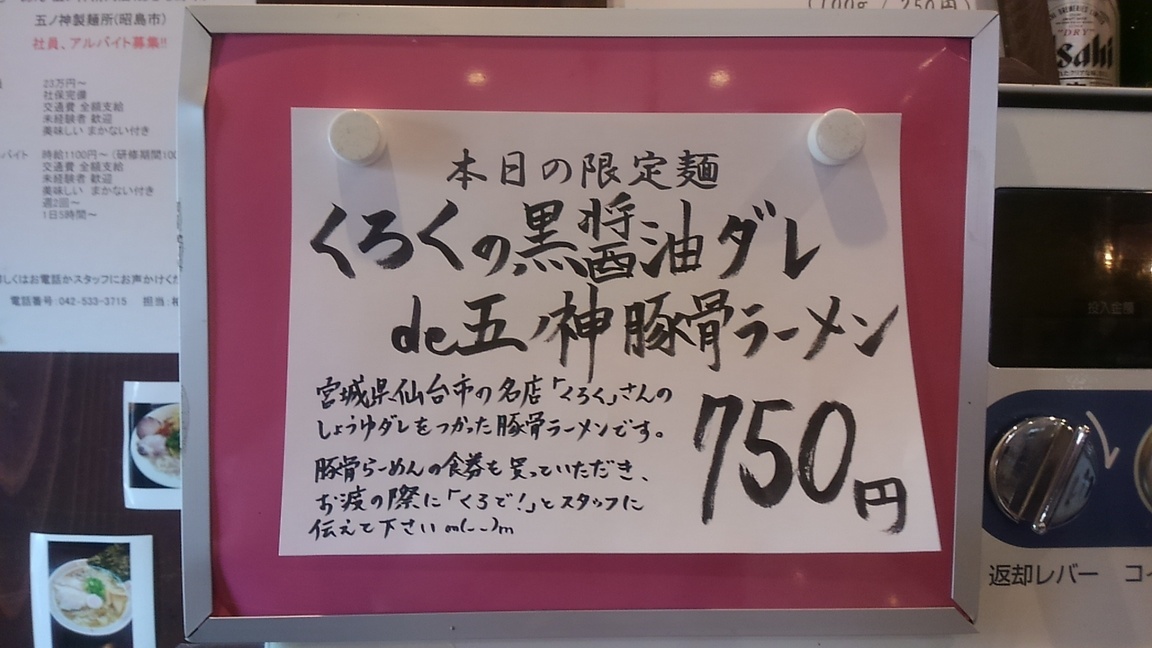 五ノ神製麺所(昭島市)
社員、アルバイト募集!!
23万円～
社保完備
交通費 全額支給
未経験者 歓迎
美味しい まかない付き
バイト 時給1100円～ (研修期間100
交通費 全額支給
未経験者 歓迎
美味しい まかない付き
週2回～
1日5時間～
しくはお電話かスタッフにお声かけくだ
電話番号:042-533-3715 担当:
本日の限定麺
くろくの黒醤油ダレ
de五ノ神豚骨ラーメン
宮城県仙台市の名店「くろく」さんの
しょうゆダレをつかった豚骨ラーメンです。
豚骨らーめんの食券も買っていただき、
お渡の際に「くろで!」とスタッフに
伝えて下さいm(--)m
750円
(100g / 250円)
DRY
Asahi
投入金額
返却レバー コイ